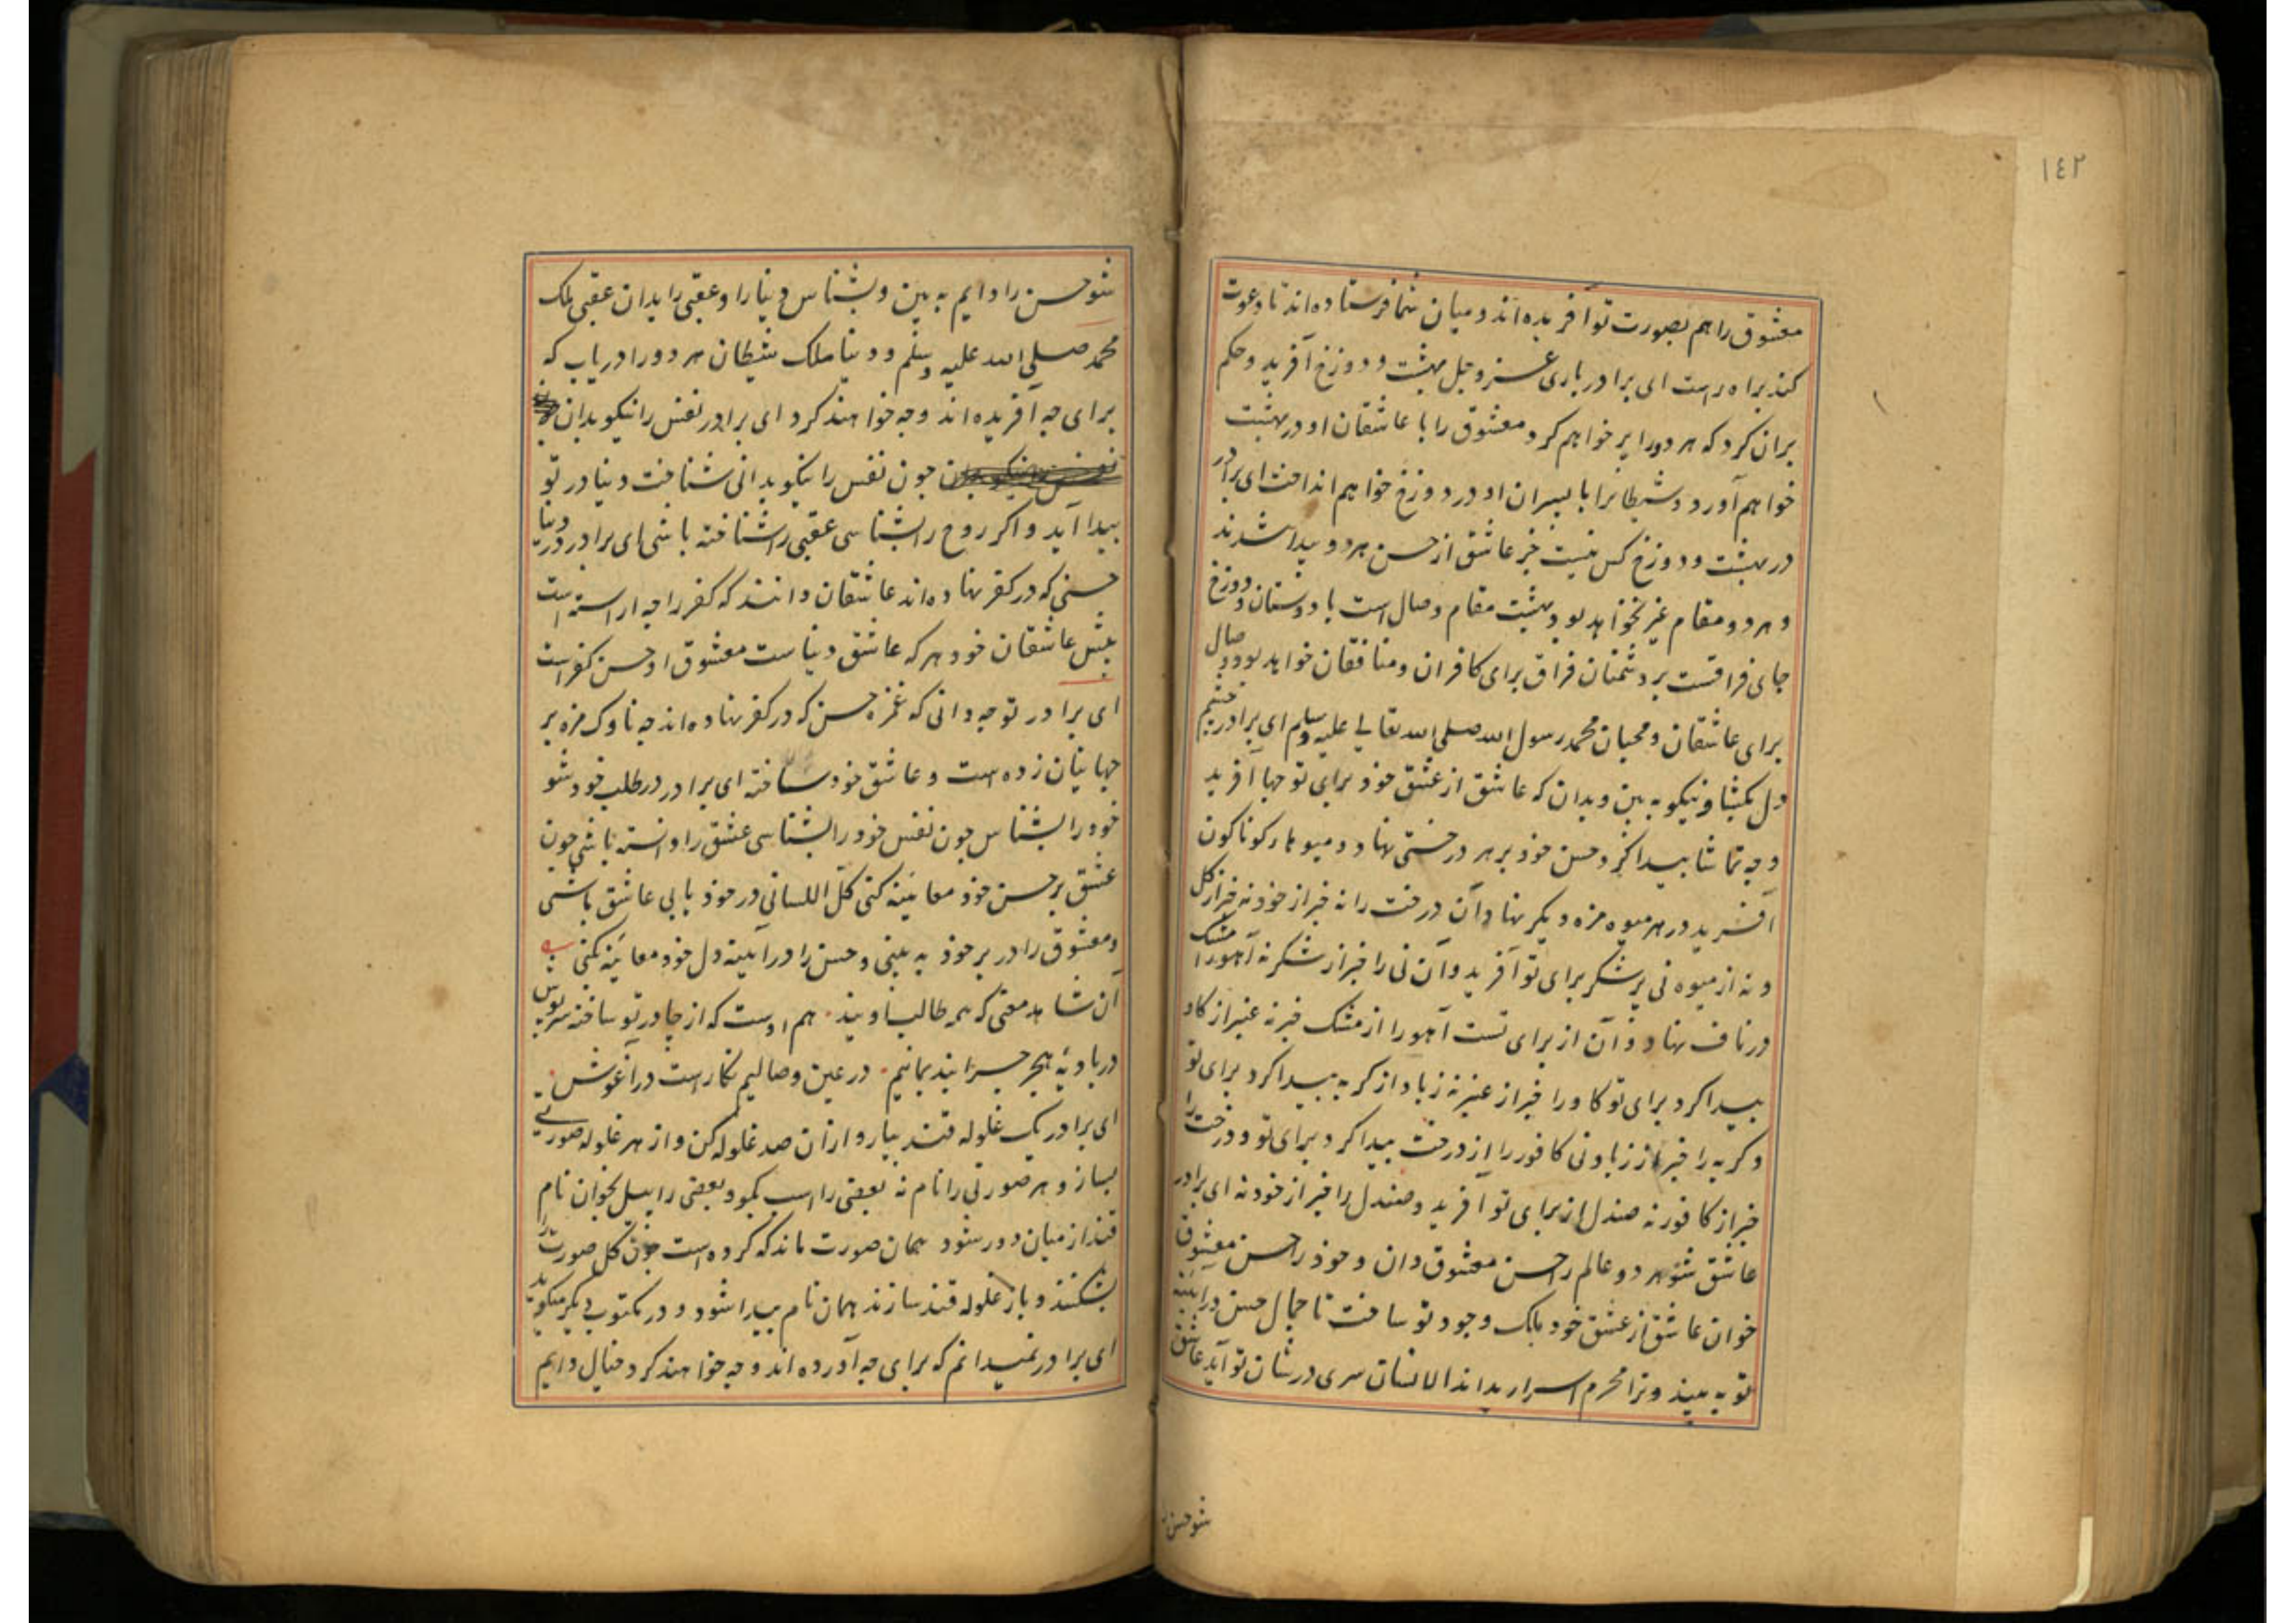 ١٤٢
معشوق را هم بصورت تو آفریده اند و میان شما فرستاده اند تا دعوت
کند براه راست ای برادر باری عز و جل بهشت و دوزخ آفرید و حکم
بران کرد که هر دو را پر خواهم کرد معشوق را با عاشقان او در بهشت
خواهم آورد و شیطانرا با پسران او در دوزخ خواهیم انداخت ای برادر
در بهشت و دوزخ کس نیست جز عاشق از حسن هر دو پیدا شدند
و هر دو مقام غیر نخواهد بود بهشت مقام وصال است با دوستان و دوزخ
جای فراقست بر دشمنان فراق برای کافران و منافقان خواهد بود و وصال
برای عاشقان و محبان محمد رسول الله صلی الله تعالی علیه وسلم ای برادر چشم
دل بکشا و نیکو به بین و بدان که عاشق از عشق خود برای تو چها آفرید
و چه تماشا پیدا کرد حسن خود بر هر درختی نهاد و میوها رکوناکون
آفرید در هر میوه مزه دیکر نهاد و آن درخت را نه خبر از خود نه خبر از کل
و نه از میوه نی پر شکر برای تو آفرید و آن نی را خبر از شکر نه آهو را مشک
در ناف نهاد و آن از برای تست آهو را از مشک خبر نه عنبر از کاو
پیدا کرد برای تو کاو را خبر از عنبر نه زباد از کربه پیدا کرد برای تو
و کربه را خبر از زباد نی کافور را از درخت پیدا کرد برای تو و درخت را
خبر از کافور نه صندل از برای تو آفرید و صندل را خبر از خود نه ای برادر
عاشق شو هر دو عالم را حسن معشوق دان و خود را حسن معشوق
خوان عاشق از عشق خود ملک وجود تو ساخت تا جمال حسن در آیینه
تو به بیند و ترا محرم اسرار بداند الانسان سری در شان تو آید عاشق
شو حسن
شو حسن را دایم به بین و بشناس دنیا را و عقبی را بدان عقبی ملک
محمد صلی الله علیه وسلم و دنیا ملک شیطان هر دو را دریاب که
برای چه آفریده اند و چه خواهند کرد ای برادر نفس را نیکو بدان
چون نفس را نیکو بدانی شناخت دنیا در تو
پیدا آید و اکر روح را بشناسی عقبی را شناخته باشی ای برادر در دنیا
حسنی که در کفر نهاده اند عاشقان دانند که کفر را چه آراسته است
پیش عاشقان خود هر که عاشق دنیاست معشوق او حسن کفر است
ای برادر تو چه دانی که غمزه حسن که در کفر نهاده اند چه ناوک مزه بر
جهانیان زده است و عاشق خود ساخته ای برادر در طلب خود شو
خود را بشناس چون نفس خود را بشناسی عشق را دانسته باشی چون
عشق بر حسن خود معاینه کنی کل اللسانی در خود یابی عاشق باشی
و معشوق را در بر خود به بینی و حسن را در آیینه دل خود معاینه کنی
آن شاهد معنی که همه طالب اویند هم اوست که از چادر تو ساخته سرپوش
در بادیه هجر چرا بند بمانیم در عین وصالیم نکارست در آغوش
ای برادر یک غلوله قند بیار و ازان صد غلوله کن و از هر غلوله صورتی
بساز و هر صورتی را نام نه بعضی را اسب بکو و بعضی را پیل بخوان نام
قند از میان دور شود همان صورت ماند که کرده است چون کل صورت را
بشکنند و باز غلوله قند سازند همان نام پیدا شود و در مکتوب دیکر میکوید
ای برادر نمیدانم که برای چه آورده اند و چه خواهند کرد خیال دایم